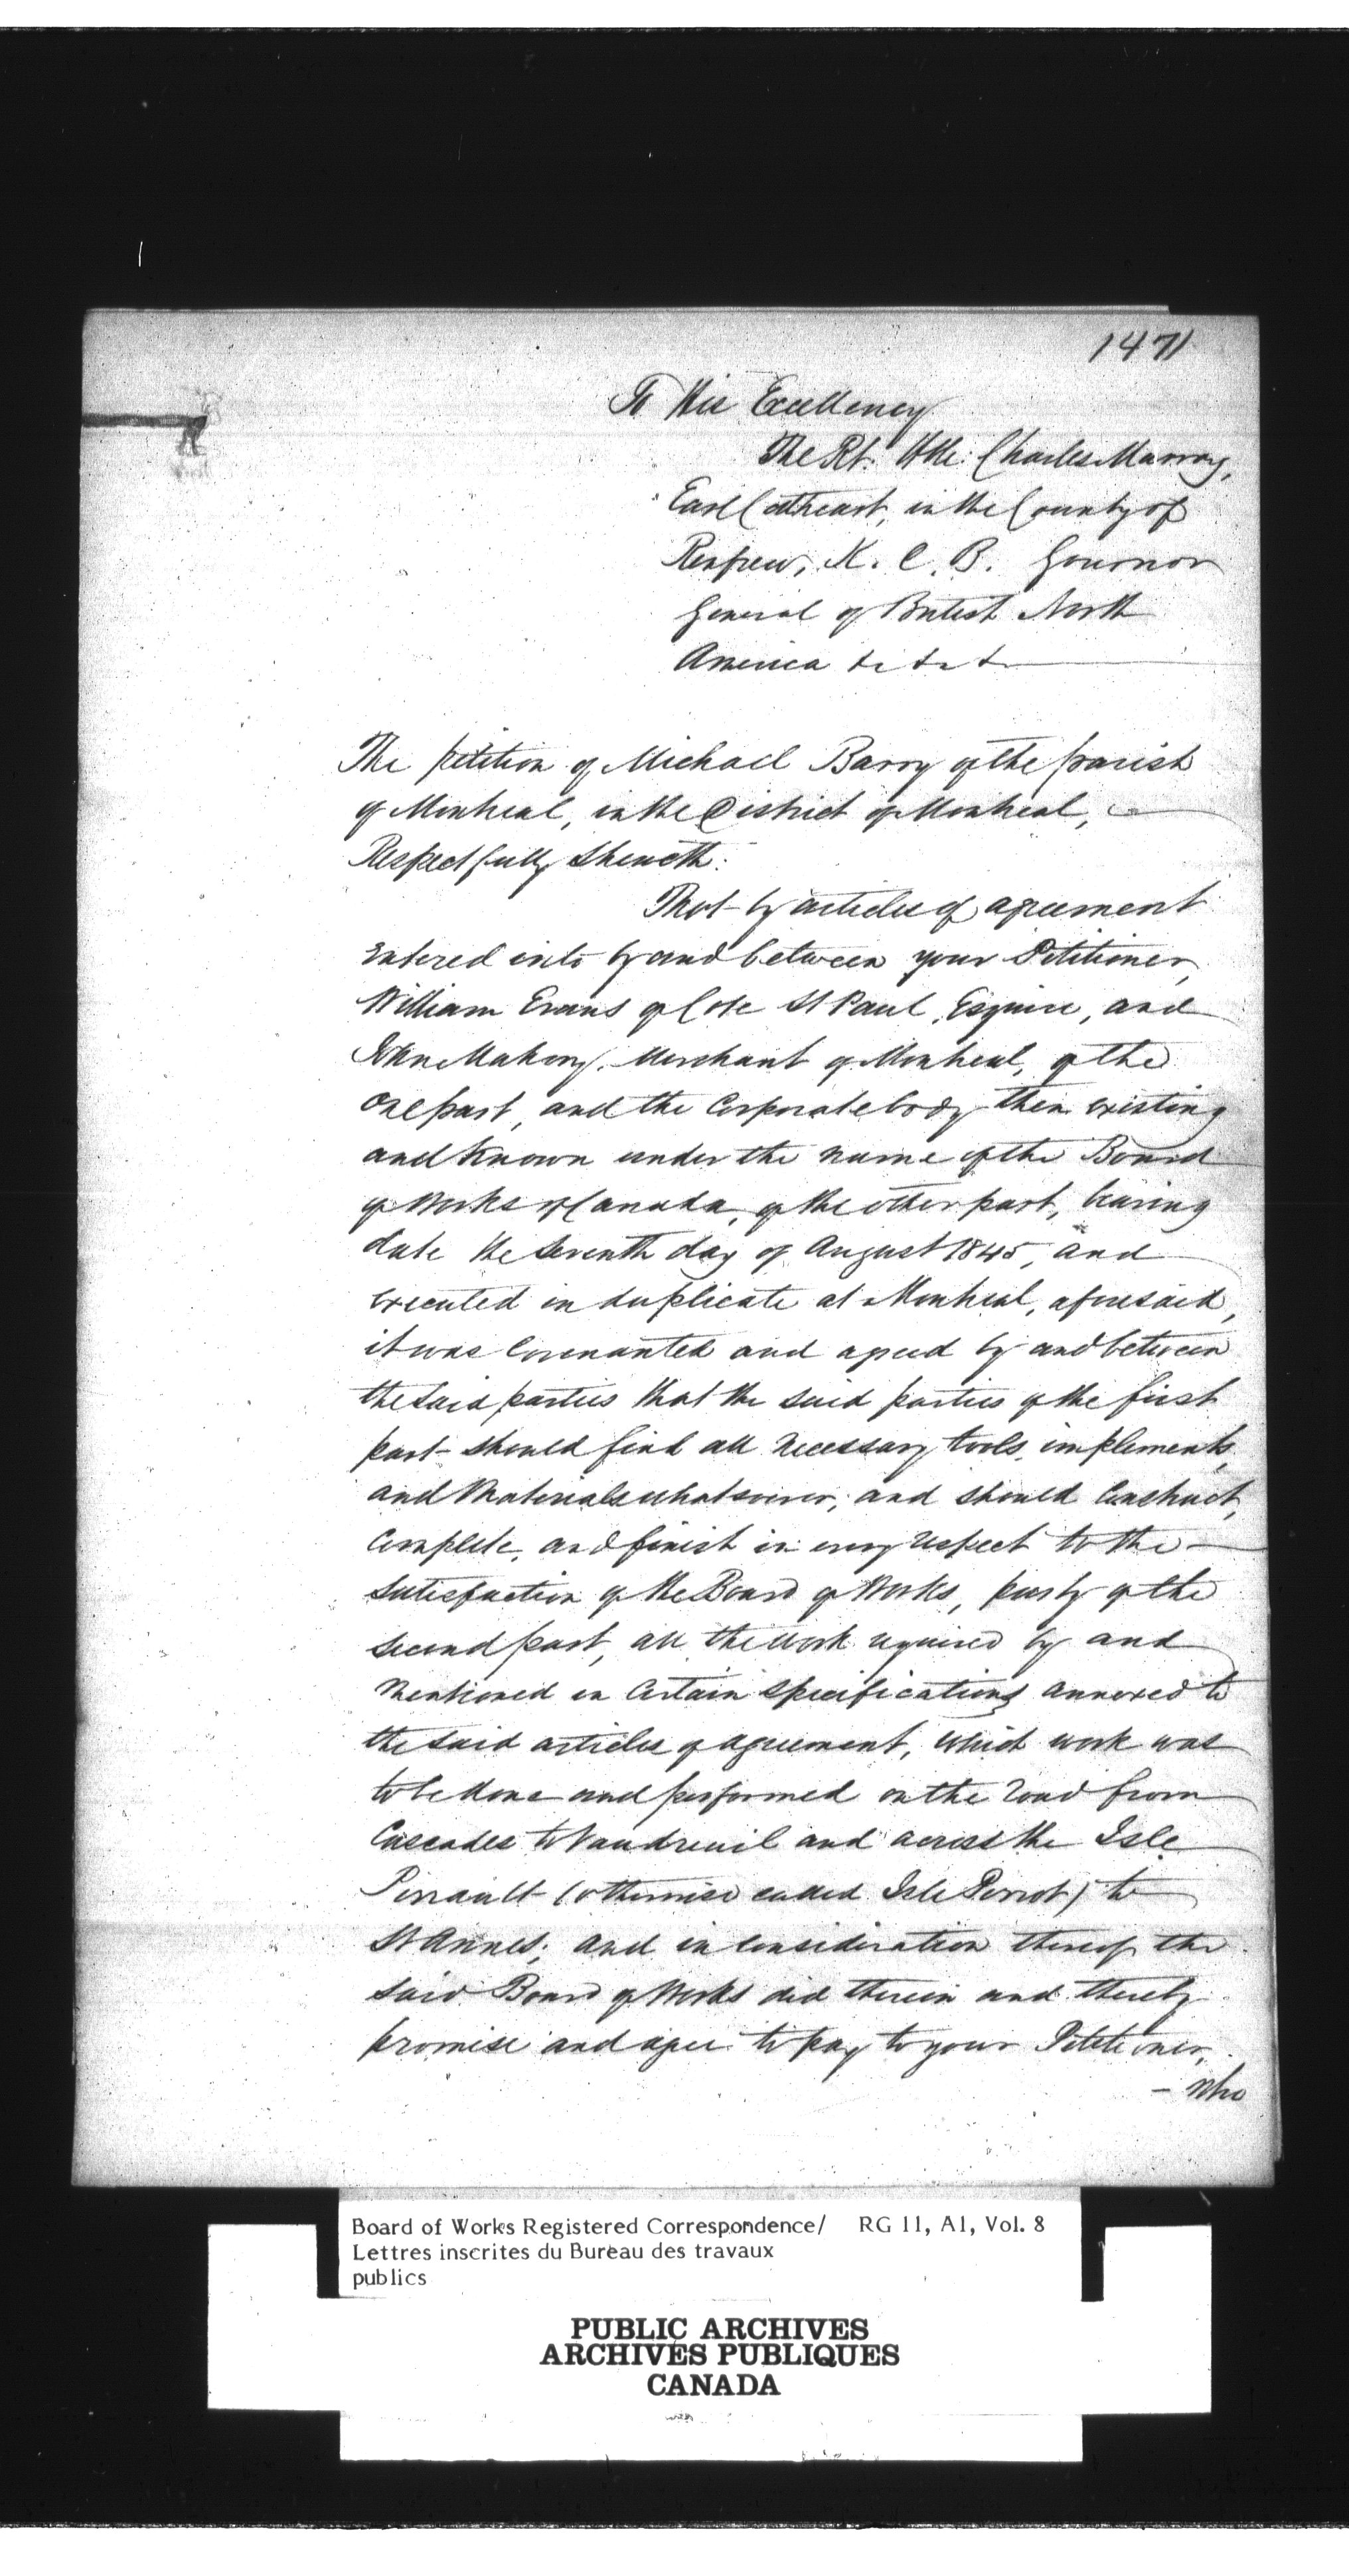 1471
To His Excellency
The Rt. Hble. Charles Murray,
Earl Cathcart, in the County of
Renfrew, K. C. B. Governor
General of British North
America &c &c &c
The petition of Michael Barry of the parish
of Montreal, in the District of Montreal,
Respectfully sheweth:
That by articles of agreement
entered into by and between your Petitioner,
William Evans of Cote St Paul, Esquire, and
John Mahony, Merchant of Montreal, of the
one part, and the Corporate body then existing
and known under the name of the Board
of Works of Canada, of the other part, bearing
date the seventh day of August 1845, and
executed in duplicate at Montreal, aforesaid,
it was covenanted and agreed by and between
the said parties that the said parties of the first
part should find all necessary tools, implements,
and Materials whatsoever, and should Construct,
Complete, and finish in every respect to the
satisfaction of the Board of Works, party of the
second part, all the work required by and
mentioned in Certain specifications annexed to
the said articles of agreement, which work was
to be done and performed on the road from
Cascades to Vaudreuil and across the Isle
Perrault (otherwise called Isle Perrot) to
St Annes; and in consideration thereof the
said Board of Works did therein and thereby
promise and agree to pay to your Petitioner,
- who
Board of Works Registered Correspondence/ RG 11, A1, Vol. 8
Lettres inscrites du Bureau des travaux
publics
PUBLIC ARCHIVES
ARCHIVES PUBLIQUES
CANADA